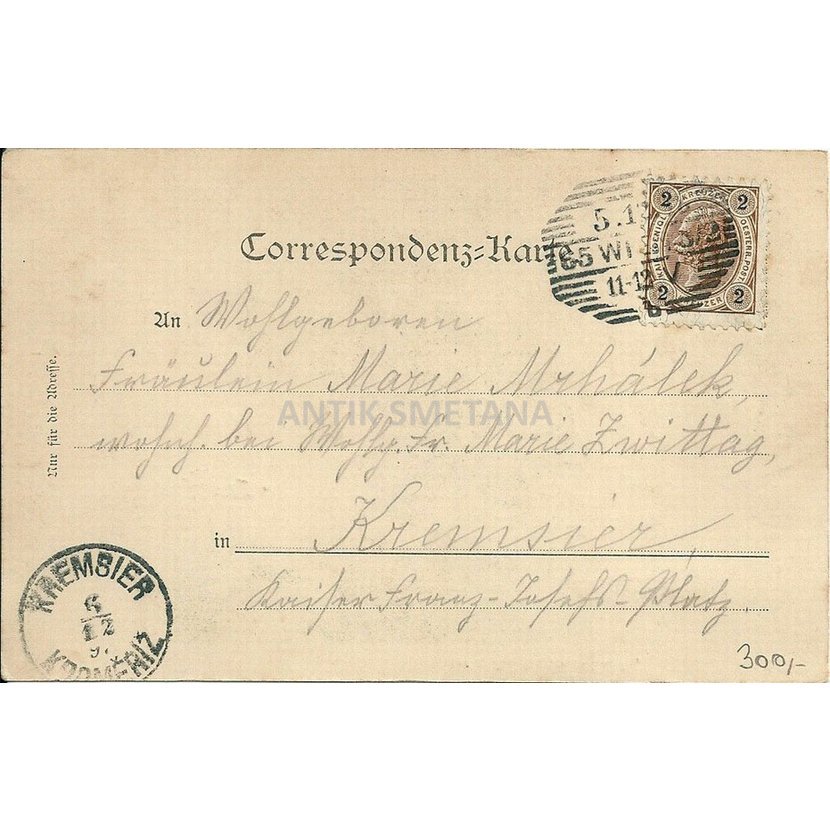 Correspondenz=Karte
5.1
65 WI
3/2
11-12
2 KREUZER 2
KAIS. KOENIGL. OESTERR. POST.
2 KREUZER 2
An Wohlgeboren
Fräulein Marie Mrhálek,
ANTIK SMETANA
wohnh. bei Wohlg. Fr. Marie Zwittag,
in Kremsier,
Kaiser Franz-Josefs-Platz,
Nur für die Adresse.
KREMSIER
6
12
97
KROMĚŘIŽ
300,-